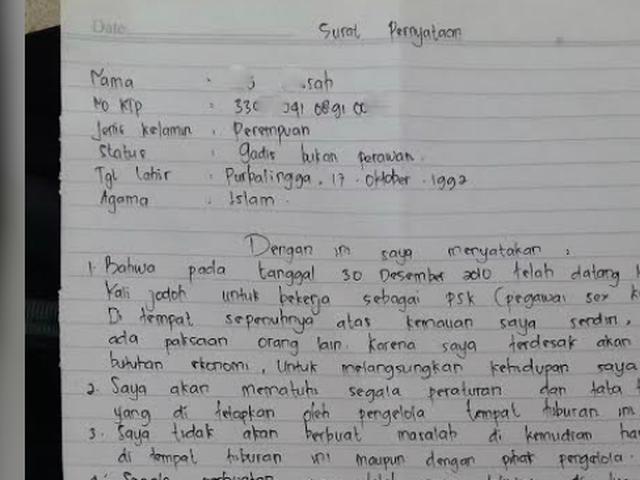 Date
Surat Pernyataan
Nama : sah
No KTP : 330 241 0891 00
Jenis kelamin : Perempuan
Status : gadis bukan perawan.
Tgl lahir : Purbalingga. 17. Oktober. 1992
Agama : Islam.
Dengan ini saya menyatakan :
1. Bahwa pada tanggal 30 Desember 2010 telah datang
Kali jodoh untuk bekerja sebagai PSK (pegawai sex
Di tempat sepenuhnya atas kemauan saya sendiri,
ada paksaan orang lain. Karena saya terdesak akan
butuhan ekonomi, Untuk melangsungkan kehidupan saya
2. Saya akan mematuhi segala peraturan dan tata
yang di tetapkan oleh pengelola tempat hiburan ini
3. Saya tidak akan berbuat masalah di kemudian
di tempat hiburan ini maupun dengan pihak pengelola.